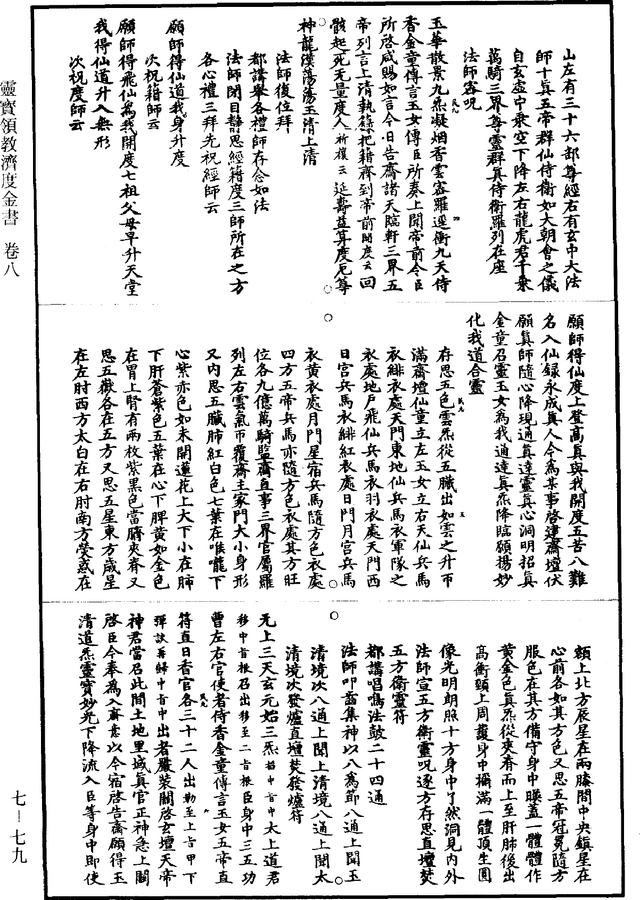 山左有三十六部尊經右有玄中大法
師十真五帝群仙侍衛如大朝會之儀
自玄虛中乘空下降左右龍虎君千乘
萬騎三界尊靈群真侍衛羅列在座
法師密呪
玉華散景九炁凝烟香雲密羅逕衝九天侍
香金童傳言玉女傳臣所奏上聞帝前令臣
所啓咸賜如言今日告齋諸天臨軒三界五
帝列言上清執籙把籍齊到帝前開度云回
骸起死无量度人祈禳云延壽益算度厄尊
神龍漢蕩蕩玉清上清
法師復位拜
都講舉各禮師存念如法
法師閉目靜思經籍度三師所在之方
各心禮三拜先祝經師云
願師得仙道我身升度
次祝籍師云
願師得飛仙爲我開度七祖父母早升天堂
我得仙道升入無形
次祝度師云
願師得仙度上登高真與我開度五苦八難
名入仙録永成真人今爲某事啓建齋壇伏
願真師隨心降現通真達靈真心洞明招真
金童召靈玉女爲我通達真炁降臨願揚妙
化我道合靈
存思五色雲炁從五臟出如雲之升帀
滿齋壇仙童立左玉女立右天仙兵馬
衣緋衣處天門東地仙兵馬衣軍隊之
衣處地戶飛仙兵馬衣羽衣處天門西
日宮兵馬衣緋紅衣處日門月宮兵馬
衣黃衣處月門星宿兵馬隨方色衣處
四方五帝兵馬亦隨方色衣處其方旺
位各九億萬騎監齋直事三界官屬羅
列左右雲氣帀覆齋主家門大小身形
又內思五臟肺紅白色七葉在喉嚨下
心紫赤色如未開蓮花上大下小在肺
下肝蒼紫色五葉在心下脾黃如金色
在胃上腎有兩枚紫黑色當臍夾脊又
思五嶽各在五方又思五星東方歲星
在左肘西方太白在右肘南方熒惑在
額上北方辰星在兩膝間中央鎮星在
心前各如其方色又思五帝冠冕隨方
服色在其方備守身中暎蓋一體體作
黃金色真炁從夾脊而上至肝肺後出
高衝頸上周護身中襴滿一體頂生圓
像光明朗照十方身中了然洞見內外
法師宣五方衛靈呪逐方存思直壇焚
五方衛靈符
都講唱鳴法鼓二十四通
法師叩齒集神以八爲節八通上聞玉
清境次八通上聞上清境八通上聞太
清境次發爐直壇焚發爐符
无上三天玄元始三炁招中首中太上道君
移中首根召出移至二首根臣身中三五功
曹左右官使者侍香金童傳言玉女五帝直
符直日香官各三十二人出勒至上首甲下
彈訣再歸中首中出者嚴裝關啓玄壇天帝
神君當召此間土地里域真官正神急上關
啓臣今奉爲入齋意以今宿啓告齋願得玉
清道炁靈寶妙光下降流入臣等身中即使
靈寶領教濟度金書 卷八
七－七九